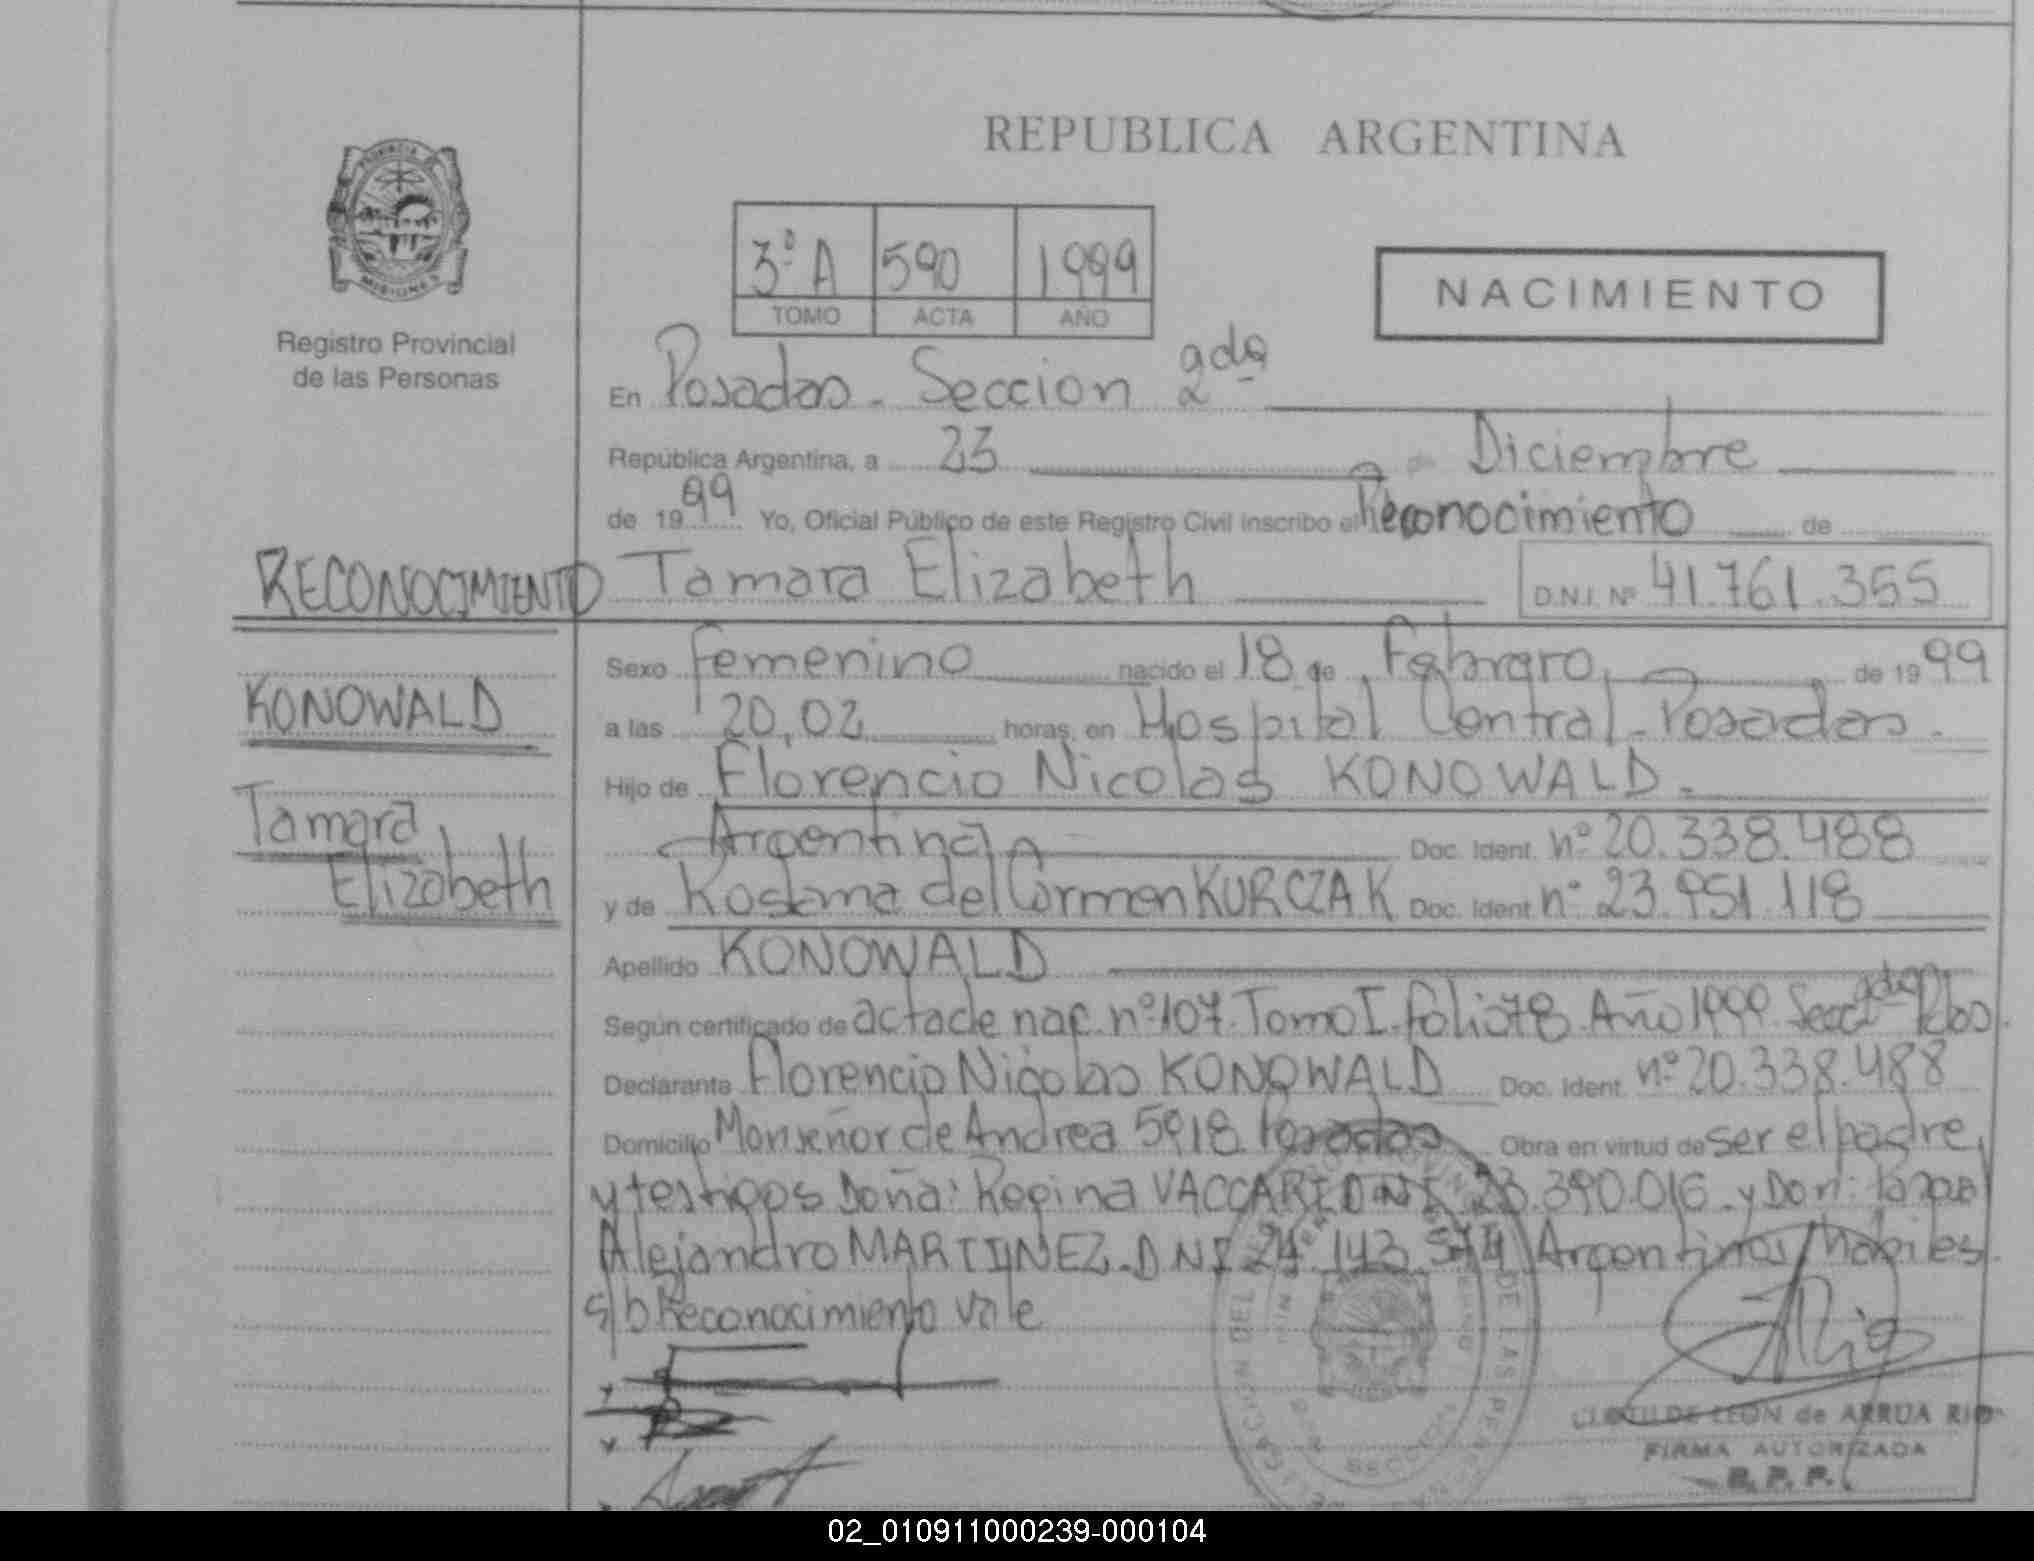 REPUBLICA ARGENTINA
PROVINCIA DE
MISIONES
Registro Provincial
de las Personas
3º A 590 1999
TOMO ACTA AÑO
NACIMIENTO
En Posadas - Seccion 2 gda
República Argentina, a 23 de Diciembre
de 1999 Yo, Oficial Público de este Registro Civil inscribo el Reconocimiento de
RECONOCIMIENTO
Tamara Elizabeth D.N.I. Nº 41.761.355
Sexo femenino nacido el 18 de Febrero de 1999
KONOWALD
a las 20,02 horas, en Hospital Central - Posadas.
Hijo de Florencio Nicolas KONOWALD.
Tamara
Argentina Doc. Ident. nº 20.338.488
Elizabeth
y de del Carmen KURCZAK Doc. Ident. nº 23.951.118
Apellido KONOWALD
Según certificado de acta de nac. nº 107. Tomo I. folio 78. Año 1999. Secc. gda Pdas.
Declarante Florencio Nicolas KONOWALD Doc. Ident. nº 20.338.488
Domicilio Monseñor de Andrea 5918 Posadas Obra en virtud de ser el padre,
y testigos Doña: Regina VACCARI DNI 23.390.016 y Don:
Alejandro MARTINEZ - DNI 24.143. Argentinos, habiles.
s/b Reconocimiento vale
CLOTILDE LEON de ARRUA RIO
FIRMA AUTORIZADA
R. P. P.
02_010911000239-000104